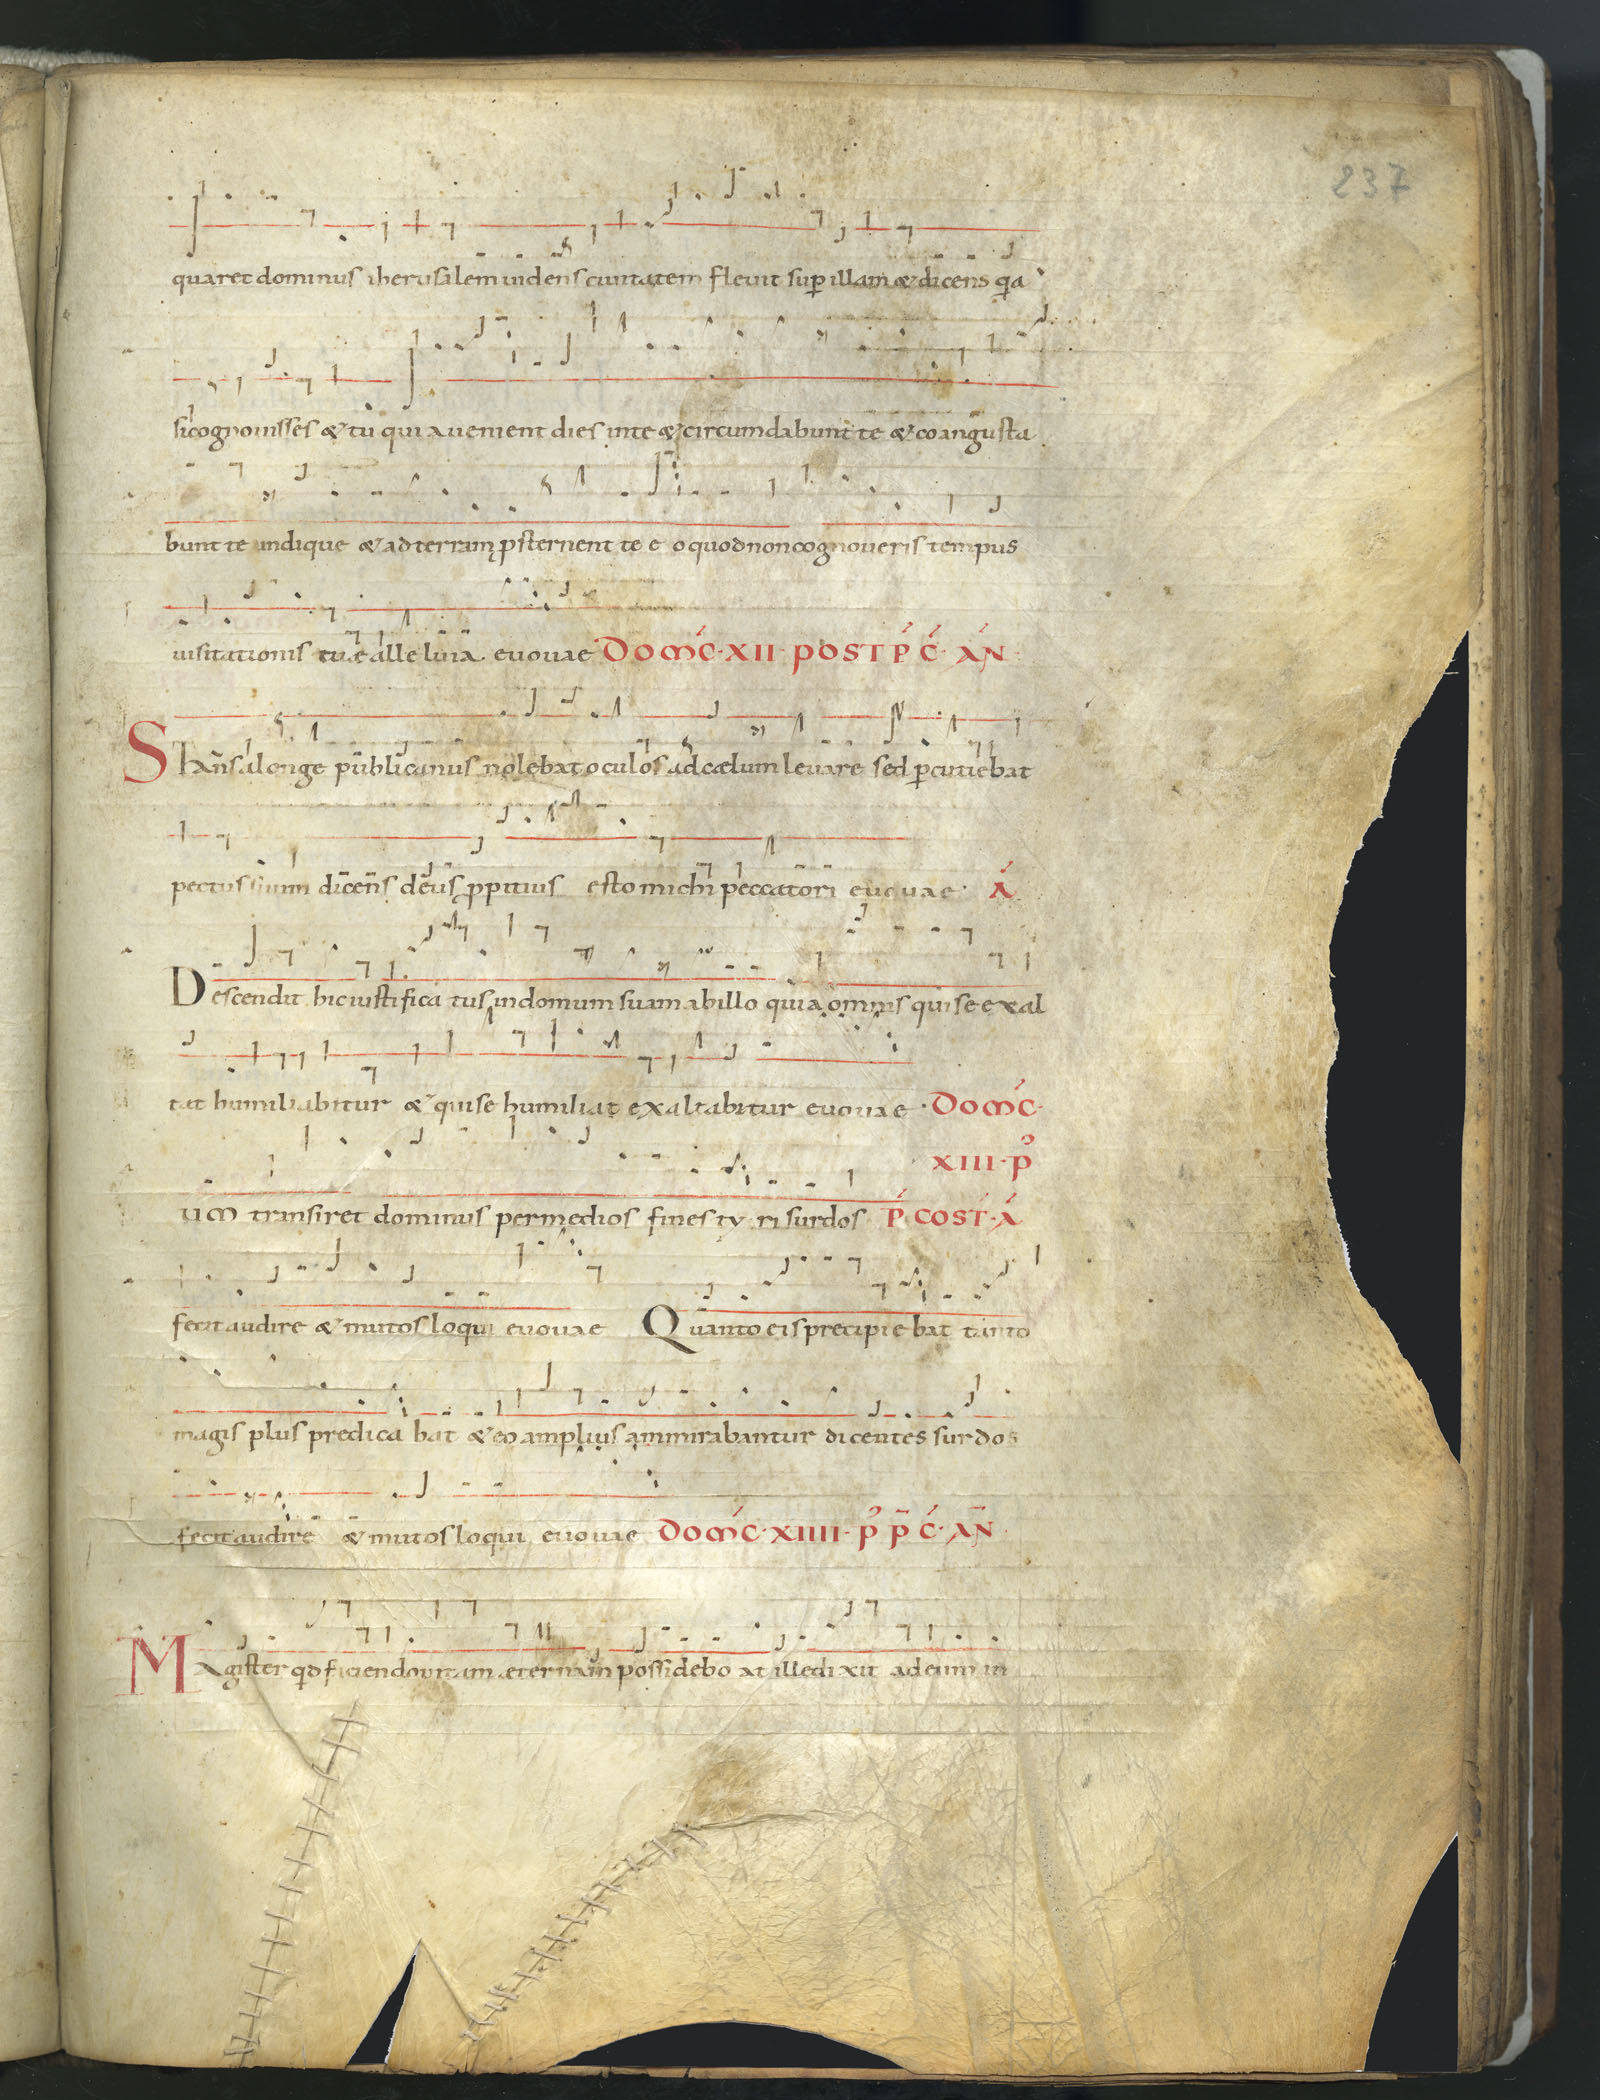 237
quaret dominus iherusalem uidens ciuitatem fleuit sup illam & dicens qa
si cognouisses & tu quia uenient dies in te & circumdabunt te & coangusta
bunt te undique & ad terram psternent te eo quod non cognoueris tempus
uisitationis tuae alleluia euouae DOMC·XII·POST P C· AN
Stans a longe publicanus nolebat oculos ad caelum leuare sed pcutiebat
pectus suum dicens deus ppitius esto michi peccatori euouae· A
Descendit hic iustificatus in domum suam ab illo quia omnis qui se exal
tat humiliabitur & qui se humiliat exaltabitur euouae· DOMC·
XIII·P
um transiret dominus per medios fines tyri surdos P COST·A
fecit audire & mutos loqui euouae Quanto eis precipiebat tanto
magis plus predicabat & eo amplius ammirabantur dicentes surdos
fecit audire & mutos loqui euouae DOMC·XIIII·P P C·AN
Magister qd faciendo uitam aeternam possidebo at ille dixit ad eum in